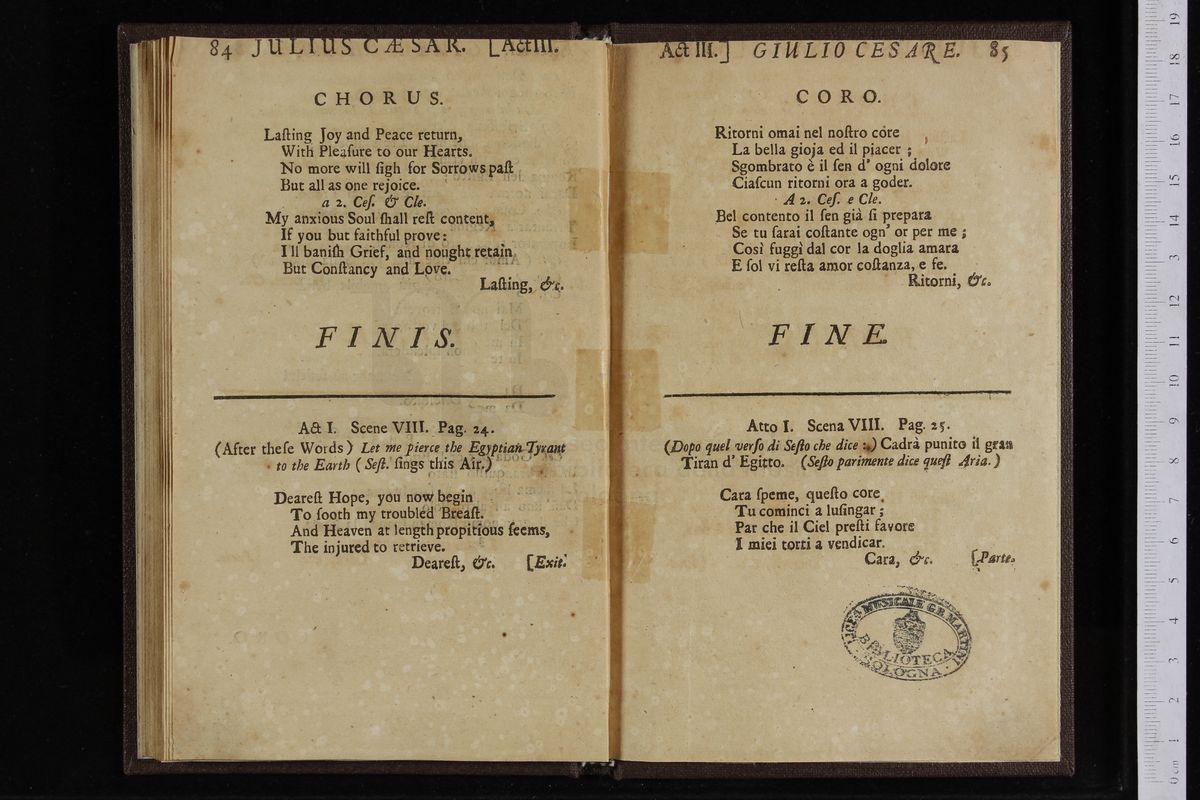 84 JULIUS CÆSAR. [Act III.
CHORUS.
Laſting Joy and Peace return,
With Pleaſure to our Hearts.
No more will ſigh for Sorrows paſt
But all as one rejoice.
a 2. Ceſ. & Cle.
My anxious Soul ſhall reſt content,
If you but faithful prove:
I'll baniſh Grief, and nought retain
But Conſtancy and Love.
Laſting, &c.
FINIS.
Act I. Scene VIII. Pag. 24.
(After theſe Words) Let me pierce the Egyptian Tyrant
to the Earth (Seſt. ſings this Air.)
Deareſt Hope, you now begin
To ſooth my troubled Breaſt.
And Heaven at length propitious ſeems,
The injured to retrieve.
Deareſt, &c. [Exit.
Act III.] GIULIO CESARE. 85
CORO.
Ritorni omai nel noſtro córe
La bella gioja ed il piacer ;
Sgombrato è il ſen d' ogni dolore
Ciaſcun ritorni ora a goder.
A 2. Ceſ. e Cle.
Bel contento il ſen già ſi prepara
Se tu ſarai coſtante ogn' or per me ;
Così fuggì dal cor la doglia amara
E ſol vi reſta amor coſtanza, e fe.
Ritorni, &c.
FINE.
Atto I. Scena VIII. Pag. 25.
(Dopo quel verſo di Seſto che dice :) Cadrà punito il gran
Tiran d' Egitto. (Seſto parimente dice queſt Aria.)
Cara ſpeme, queſto core
Tu cominci a luſingar ;
Par che il Ciel preſti favore
I miei torti a vendicar.
Cara, &c. [Parte.
LICEA MUSICALE G.B. MARTINI
BIBLIOTECA
BOLOGNA
0 cm 1 2 3 4 5 6 7 8 9 10 11 12 13 14 15 16 17 18 19